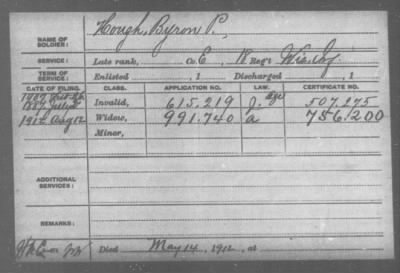 NAME OF SOLDIER: Hough, Byron P.,
SERVICE: Late rank, Co. E, 18 Reg't Wis. Inf.
TERM OF SERVICE: Enlisted , 1 Discharged , 1
DATE OF FILING. CLASS. APPLICATION NO. LAW. CERTIFICATE NO.
1907
1887 July Invalid, 615.219 J. Age 507.275
1912 Aug 12 Widow, 991.740 a 756.200
Minor,
ADDITIONAL SERVICES:
REMARKS:
Died May 14, 1912, at